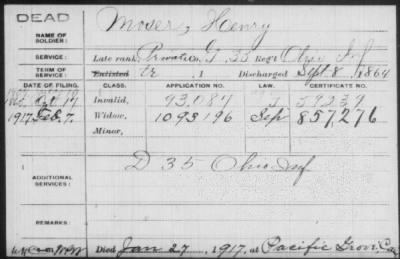 DEAD
NAME OF SOLDIER: Moser, Henry
SERVICE: Late rank, Private Co. G, 35 Reg't Ohio Inf
TERM OF SERVICE: Enlisted , 1 Discharged Sept 8, 1864
DATE OF FILING. CLASS. APPLICATION NO. LAW. CERTIFICATE NO.
Invalid, 93,084 59239
1917 Feb. 7. Widow, 1093196 Sep 857,276
Minor,
ADDITIONAL SERVICES: D 35 Ohio Inf
REMARKS:
Died Jan 27, 1917, at Pacific Grove, Cal